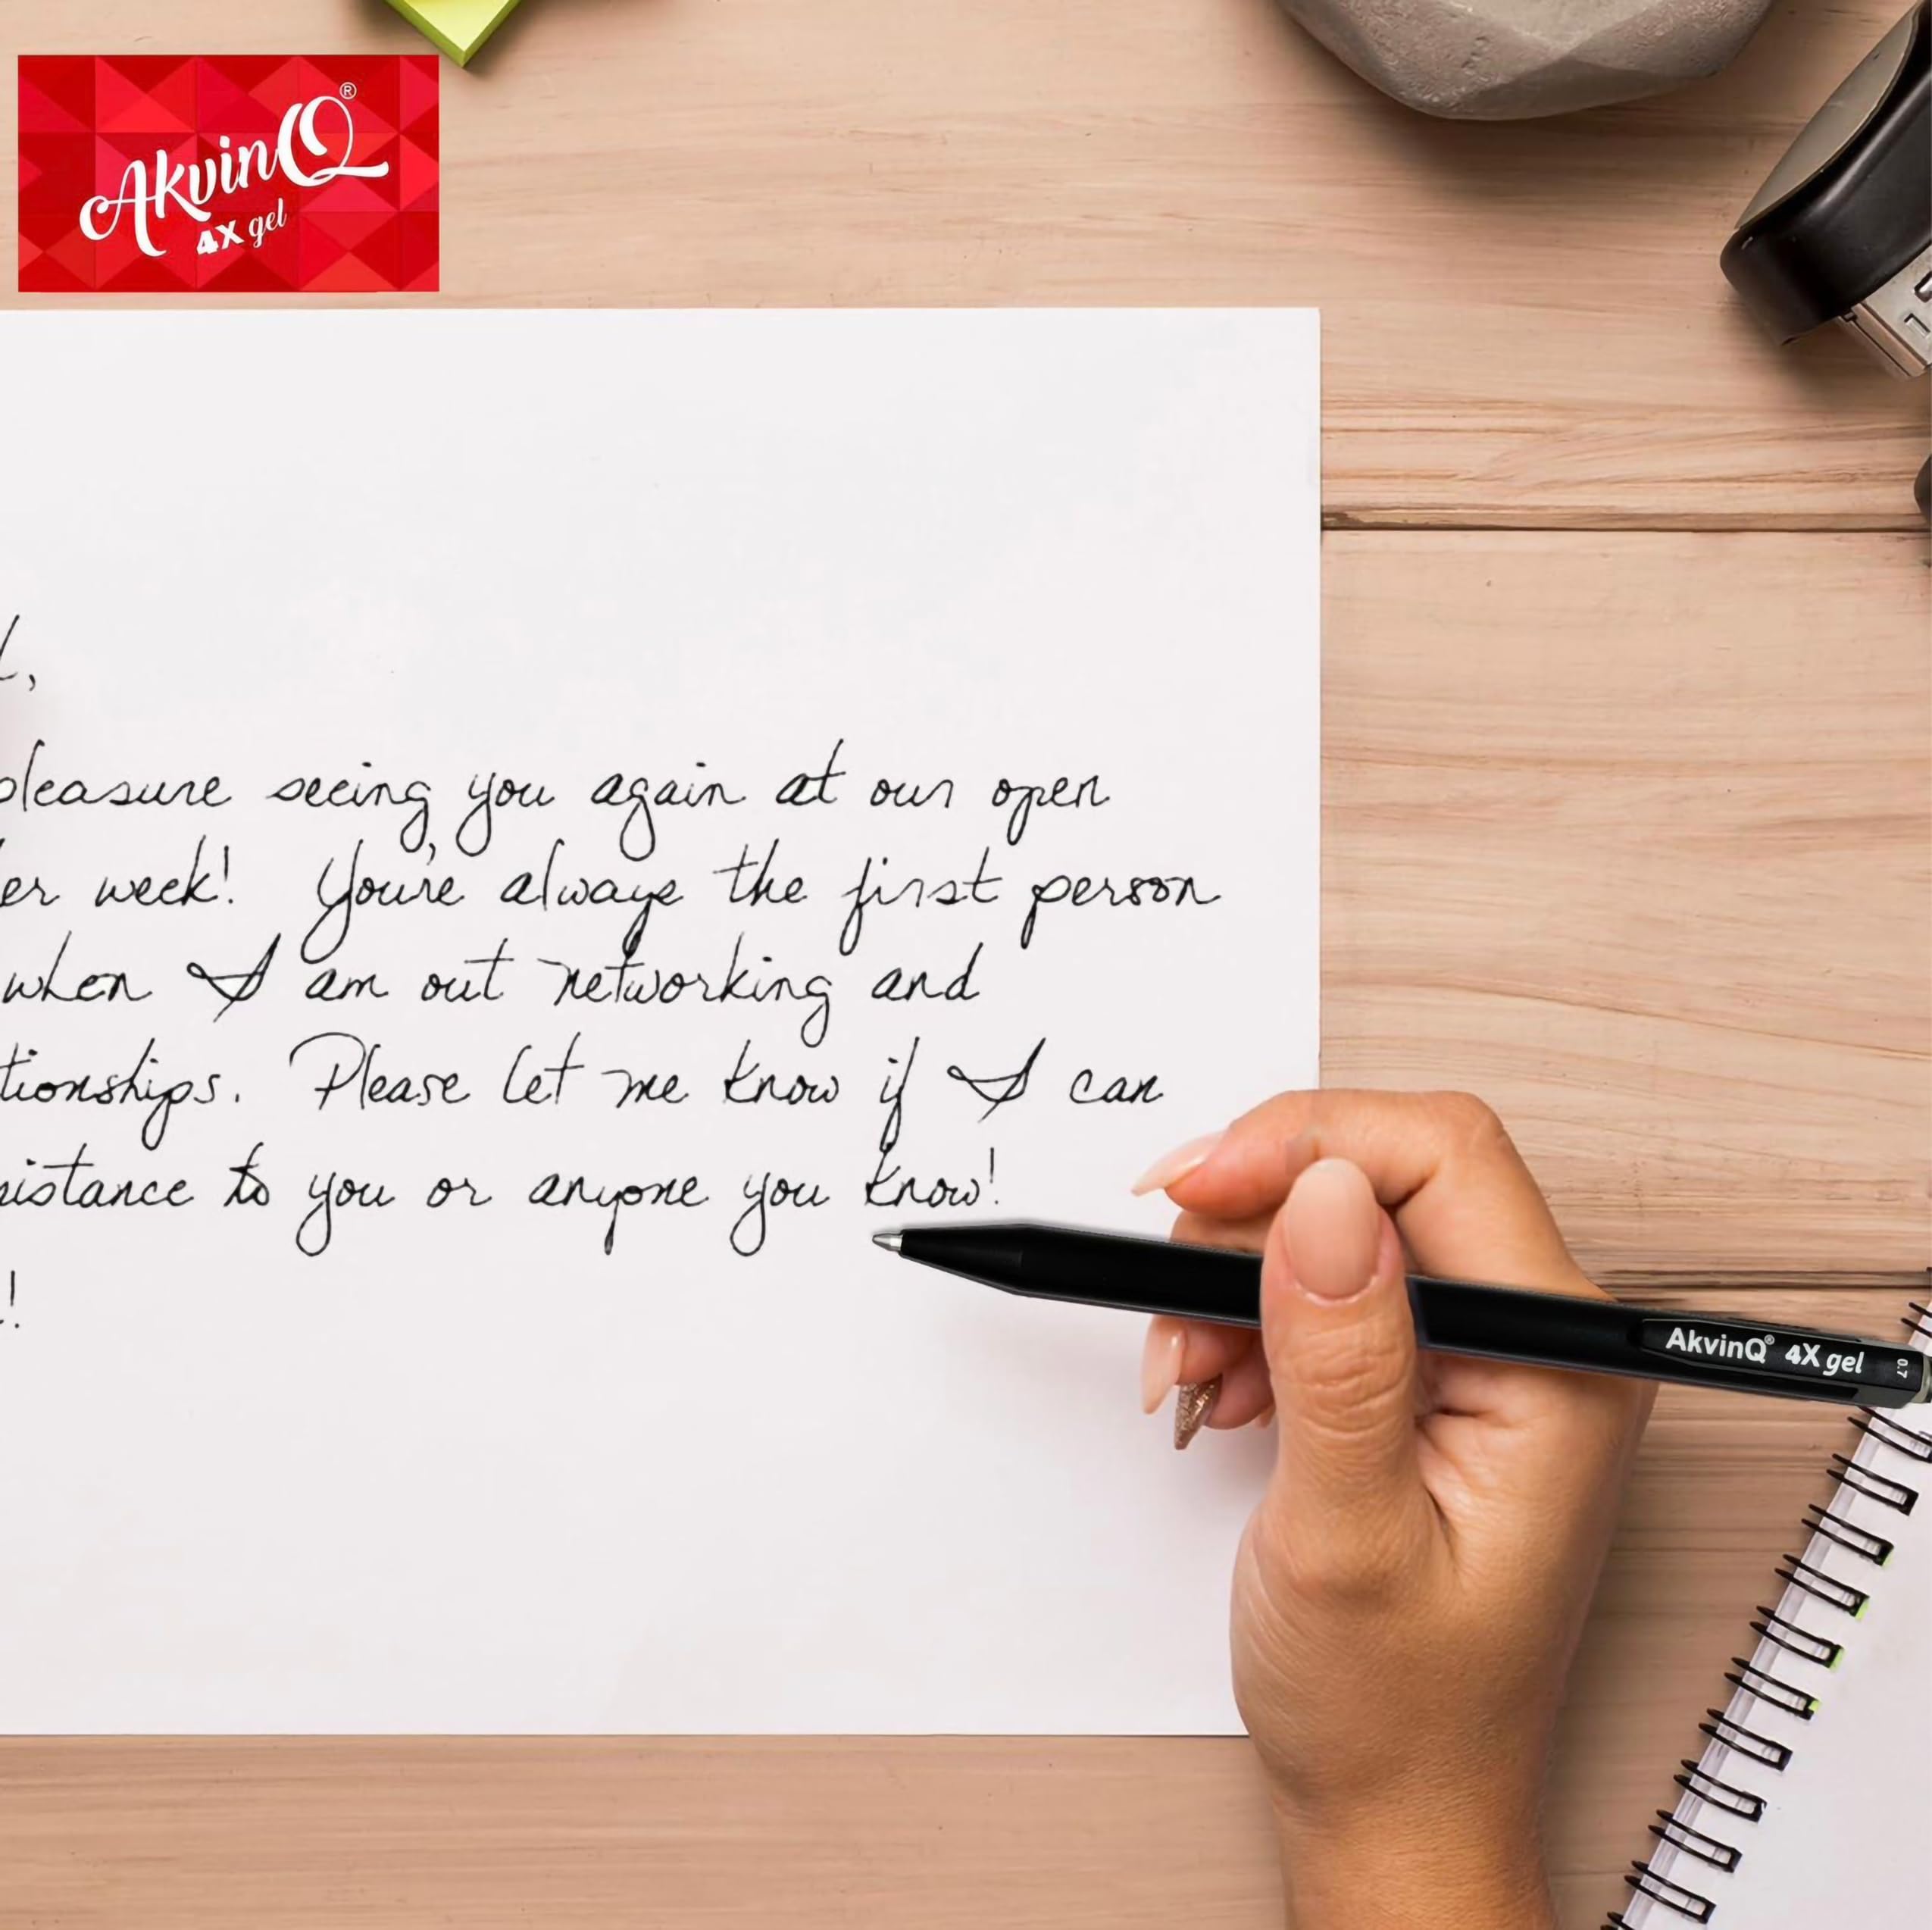 AkvinQ®
4X gel
pleasure seeing you again at our open
er week! You're always the first person
when I am out networking and
tionships. Please let me know if I can
sistance to you or anyone you know!
!
AkvinQ® 4X gel 0.7